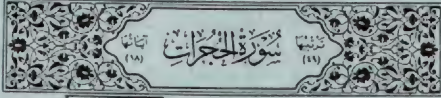 ترتيبها (٤٩) سُورَةُ الْحُجُرَاتِ آياتها (١٨)